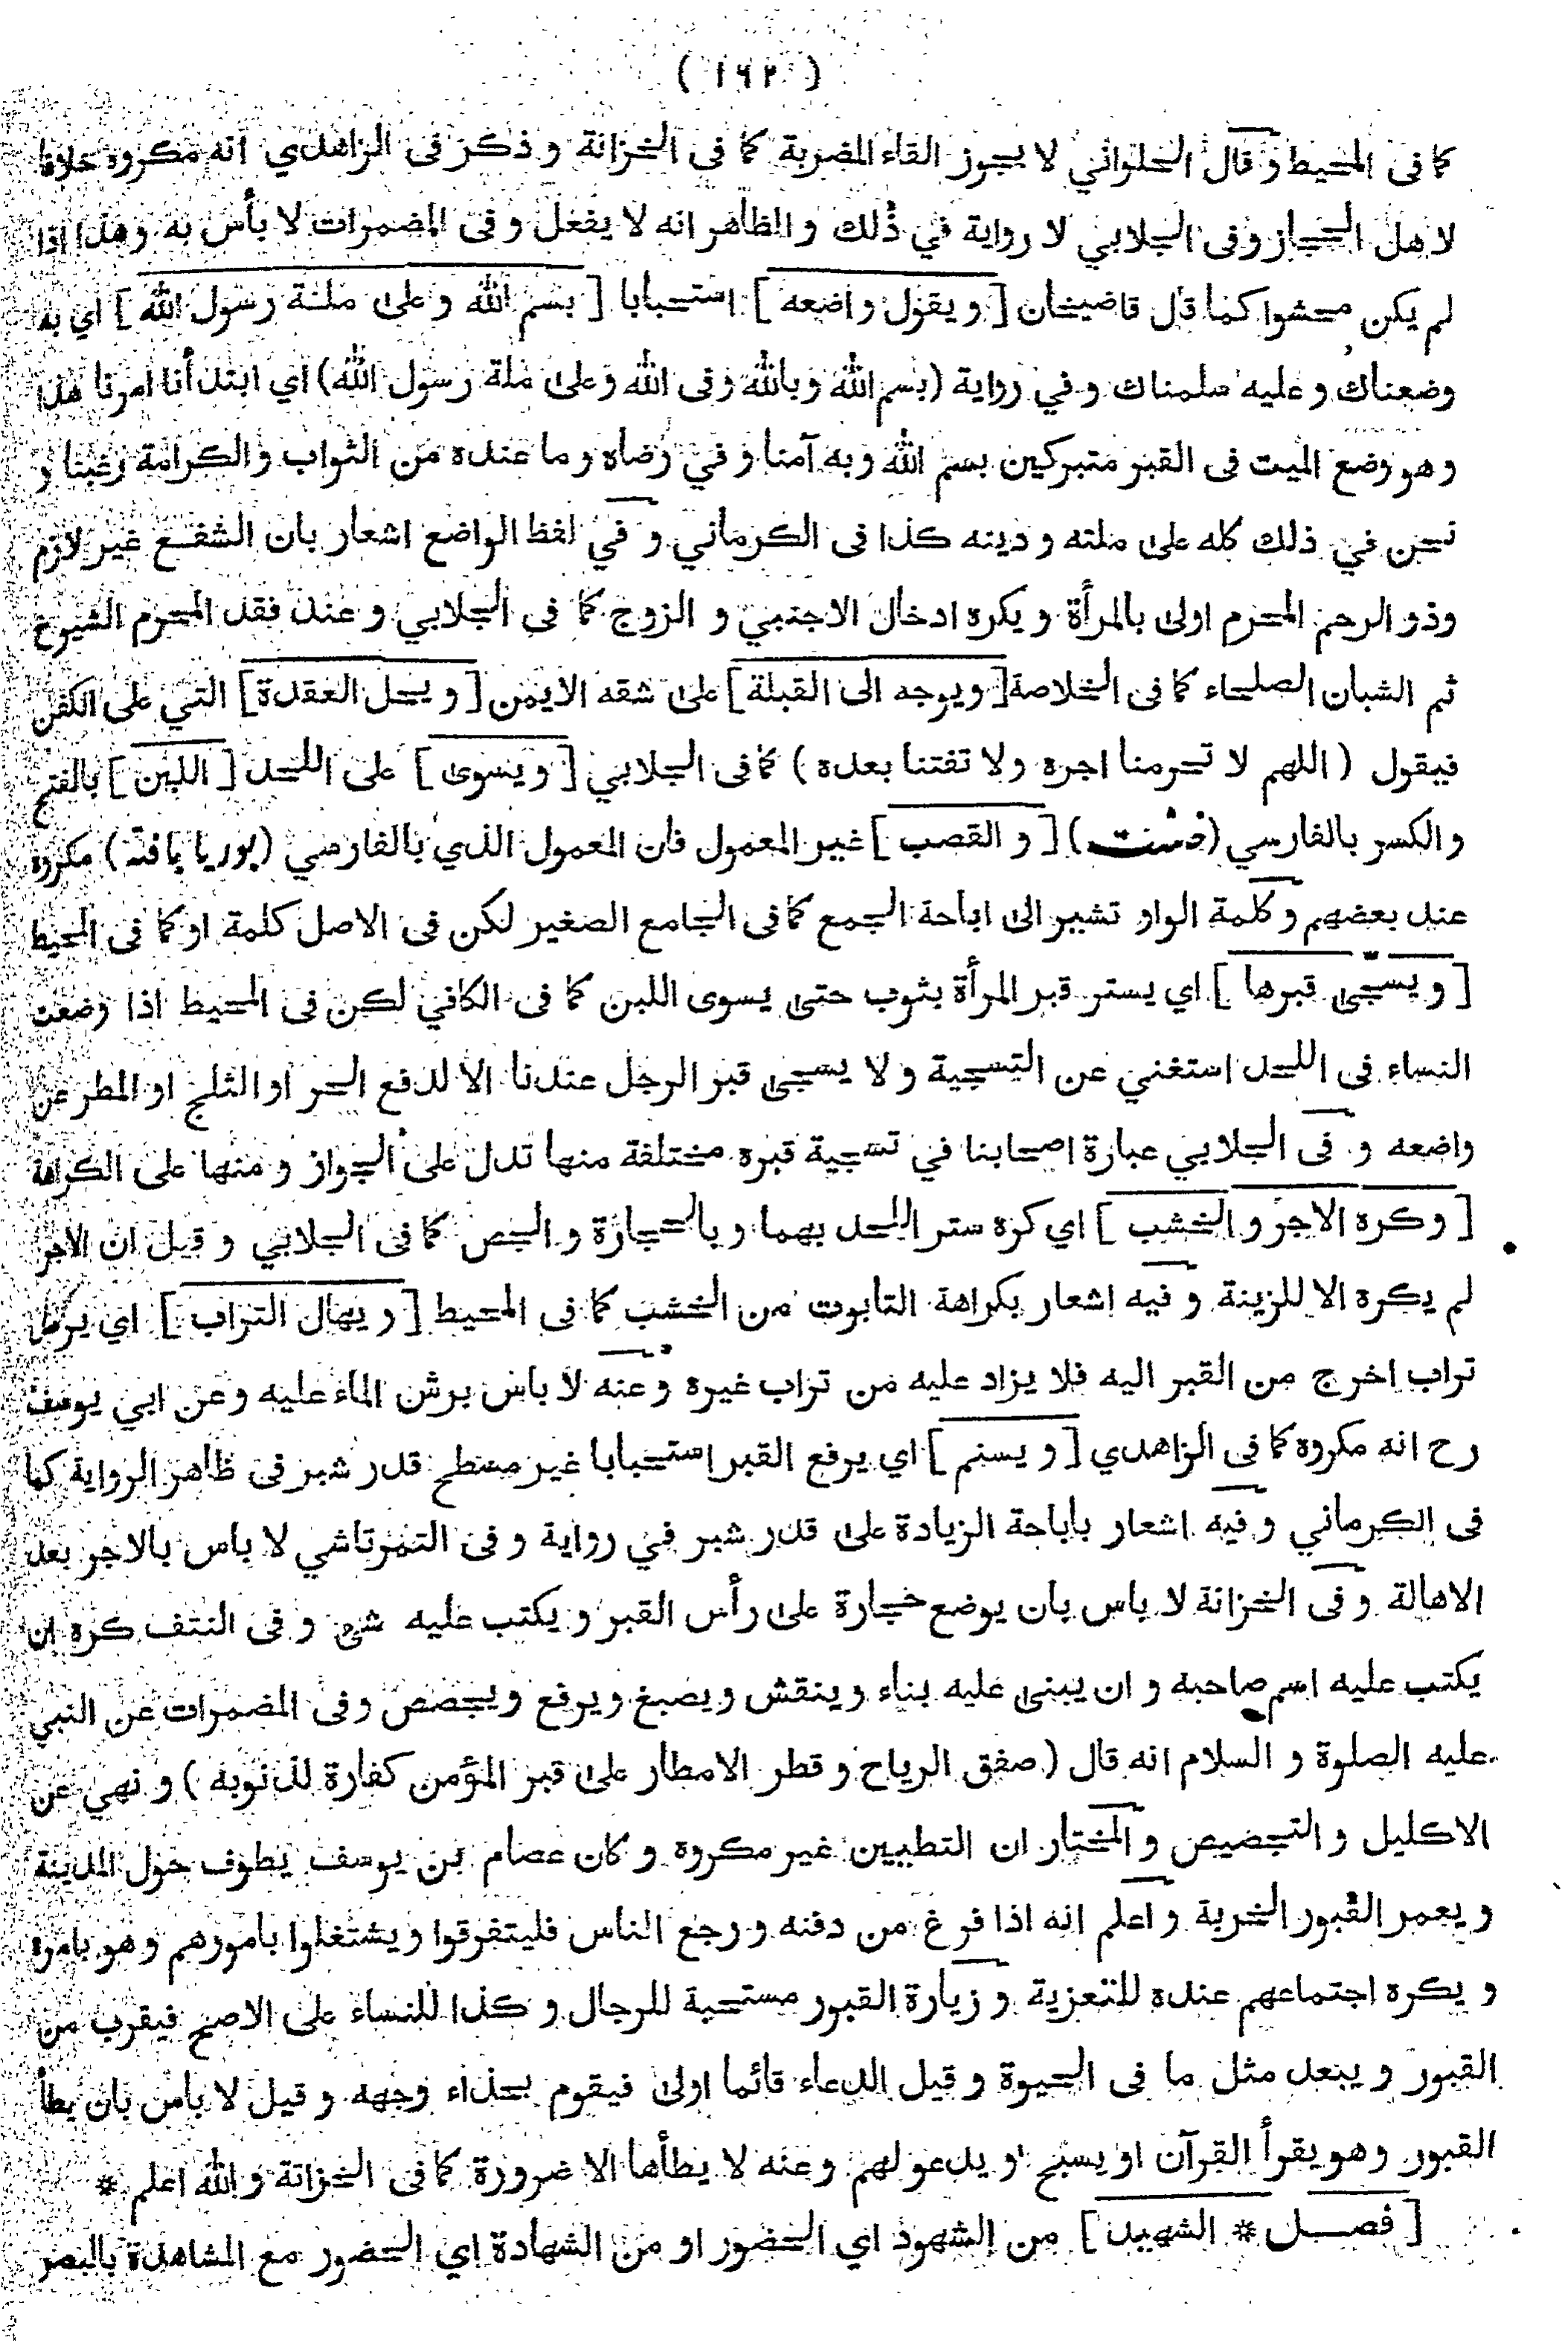 ( ١٦٢ )
كما فى المحيط و قال الحلوانى لا يجوز القاء المضربة كما فى الخزانة و ذكر فى الزاهدي انه مكروه خلافا
لاهل الحجاز وفى الجلابي لا رواية في ذلك و الظاهر انه لا يفعل و فى المضمرات لا بأس به وهذا اذا
لم يكن محشوا كما قال قاضيخان [ و يقول واضعه ] استحبابا [ بسم الله و على ملـة رسول الله ] اي به
وضعناك و عليه سلمناك و في رواية (بسم الله وبالله وفى الله وعلى ملة رسول الله) اي ابتدأنا امرنا هذا
وهو وضع الميت فى القبر متبركين بسم الله وبه آمنا و في رضاه و ما عنده من الثواب والكرامة رغبنا و
نحن في ذلك كله على ملته و دينه كذا فى الكرماني و في لفظ الواضع اشعار بان الشفع غير لازم
وذو الرحم المحرم اولى بالمرأة و يكره ادخال الاجنبي و الزوج كما فى الجلابي و عند فقد المحرم الشيوخ
ثم الشبان الصلحاء كما فى الخلاصة [ ويوجه الى القبلة ] على شقه الايمن [ و يحل العقدة ] التي على الكفن
فيقول ( اللهم لا تحرمنا اجره ولا تفتنا بعده ) كما فى الجلابي [ و يسوى ] على اللحد [ اللبن ] بالفتح
و الكسر بالفارسي (خشت) [ و القصب ] غير المعمول فان المعمول الذي بالفارسي (بوريا بافته) مكروه
عند بعضهم و كلمة الواو تشير الى اباحة الجمع كما فى الجامع الصغير لكن فى الاصل كلمة او كما فى المحيط
[ و يسجّى قبرها ] اي يستر قبر المرأة بثوب حتى يسوى اللبن كما فى الكافي لكن فى المحيط اذا وضعت
النساء فى اللحد استغني عن التسجية و لا يسجى قبر الرجل عندنا الا لدفع الحر او الثلج او المطر عن
واضعه و فى الجلابي عبارة اصحابنا في تسجية قبره مختلفة منها تدل على الجواز و منها على الكراهة
[ و كره الاجر و الخشب ] اي كره ستر اللحد بهما و بالحجارة و الجص كما فى الجلابي و قيل ان الاجر
لم يكره الا للزينة و فيه اشعار بكراهة التابوت من الخشب كما فى المحيط [ و يهال التراب ] اي يرسل
تراب اخرج من القبر اليه فلا يزاد عليه من تراب غيره و عنه لا باس برش الماء عليه وعن ابي يوسف
رح انه مكروه كما فى الزاهدي [ و يسنم ] اي يرفع القبر استحبابا غير مسطح قدر شبر فى ظاهر الرواية كما
فى الكرماني و فيه اشعار باباحة الزيادة على قدر شبر في رواية و فى التمرتاشي لا باس بالاجر بعد
الاهالة و فى الخزانة لا باس بان يوضع حجارة على رأس القبر و يكتب عليه شئ و فى النتف كره ان
يكتب عليه اسم صاحبه و ان يبنى عليه بناء و ينقش ويصبغ ويرفع ويجصص وفى المضمرات عن النبي
عليه الصلوة و السلام انه قال ( صفق الرياح و قطر الامطار على قبر المؤمن كفارة لذنوبه ) و نهي عن
الاكليل و التجصيص و المختار ان التطيين غير مكروه و كان عصام بن يوسف يطوف حول المدينة
و يعمر القبور الخربة و اعلم انه اذا فرغ من دفنه و رجع الناس فليتفرقوا ويشتغلوا بامورهم وهو بامره
و يكره اجتماعهم عنده للتعزية و زيارة القبور مستحبة للرجال و كذا للنساء على الاصح فيقرب من
القبور و يبعد مثل ما فى الحيوة و قيل الدعاء قائما اولى فيقوم بحذاء وجهه و قيل لا باس بان يطأ
القبور وهو يقرأ القرآن او يسبح او يدعو لهم وعنه لا يطأها الا ضرورة كما فى الخزانة و الله اعلم *
[ فصـــل * الشهيد ] من الشهود اي الحضور او من الشهادة اي الحضور مع المشاهدة بالبصر